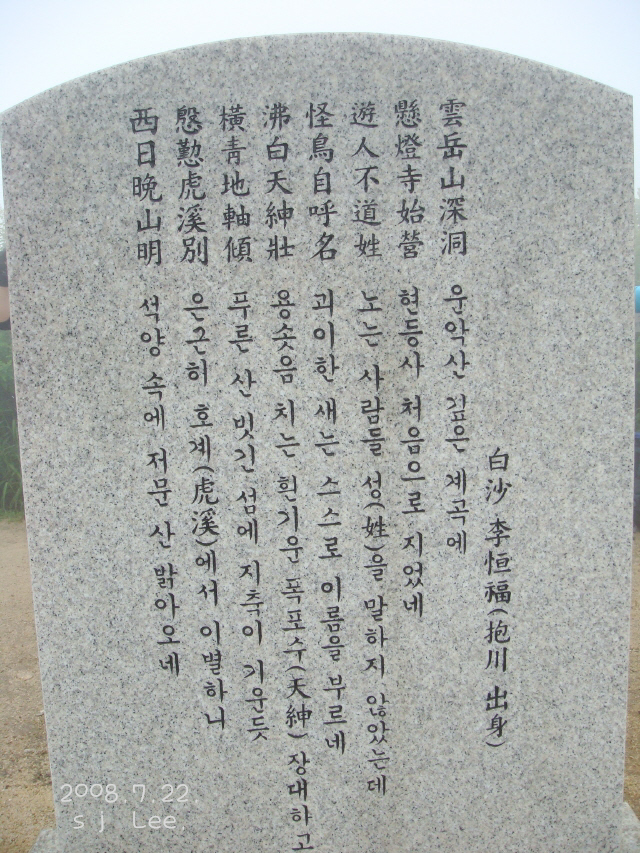 白沙 李恒福(抱川 出身)
雲岳山深洞 운악산 깊은 계곡에
懸燈寺始營 현등사 처음으로 지었네
遊人不道姓 노는 사람들 성(姓)을 말하지 않았는데
怪鳥自呼名 괴이한 새는 스스로 이름을 부르네
沸白天紳壯 용솟음 치는 흰기운 폭포수(天紳) 장대하고
橫靑地軸傾 푸른 산 빗긴 섬에 지축이 기운듯
慇懃虎溪別 은근히 호계(虎溪)에서 이별하니
西日晩山明 석양 속에 저문 산 밝아오네
2008.7.22.
s j Lee.